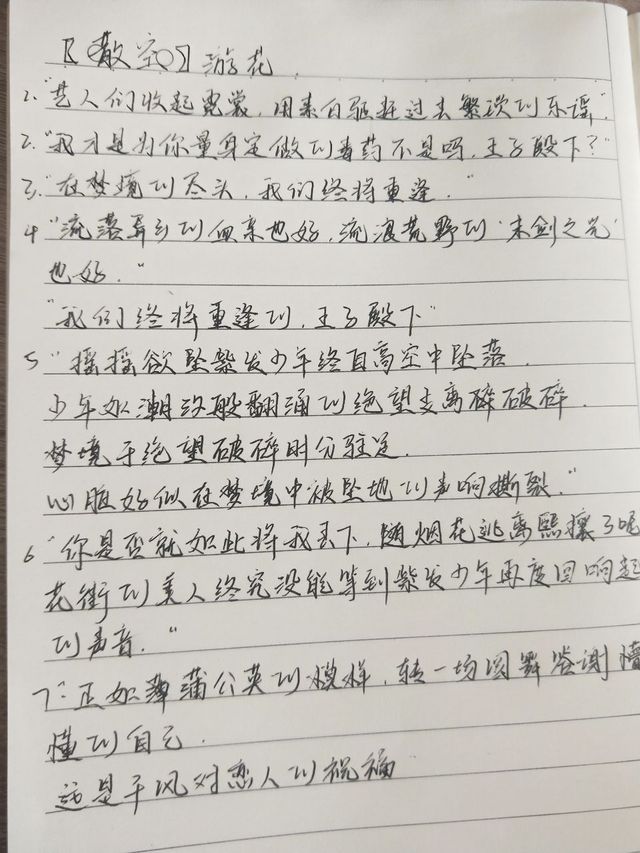 【《散空》】游花
1."艺人们收起霓裳，用素白驱赶过去繁琐的乐谣"
2."我才是为你量身定做的毒药不是吗，王子殿下？"
3."在梦境的尽头，我们终将重逢."
4 "流落异乡的血亲也好，流浪荒野的'末剑之咒'
也好."
"我们终将重逢的，王子殿下"
5 "摇摇欲坠紫发少年终自高空中坠落.
少年如潮汐般翻涌的绝望支离碎破碎.
梦境于绝望破碎时分驻足.
心脏好似在梦境中被坠地的声响撕裂."
6 "你是否就如此将我丢下，随烟花逃离熙攘了呢
花街的美人终究没能等到紫发少年再度回响起
的声音."
7:"正如蒲公英的模样，转一场圆舞答谢懵
懂的自己.
这是千风对恋人的祝福